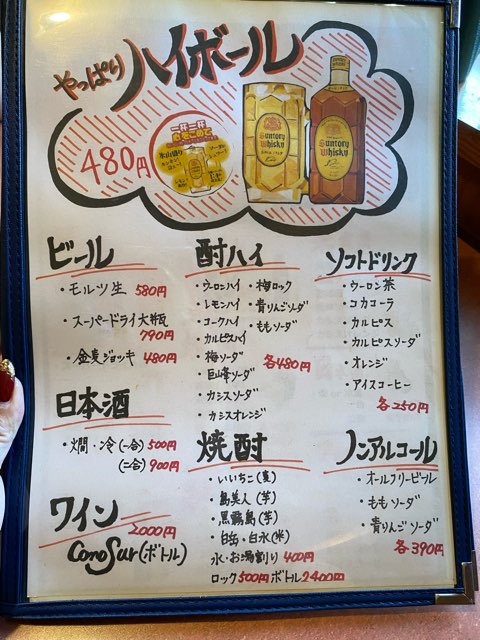 やっぱりハイボール
480円
一杯一杯
Suntory
Whisky
Suntory
Whisky
ビール
・モルツ生 580円
・スーパードライ大瓶
790円
・金麦ジョッキ 480円
日本酒
・燗・冷(一合) 500円
(二合) 900円
ワイン
2000円
Cono Sur(ボトル)
酎ハイ
・ウーロンハイ ・梅ロック
・レモンハイ ・青りんごソーダ
・コークハイ ・ももソーダ
・カルピスハイ
・梅ソーダ 各480円
・巨峰ソーダ
・カシスソーダ
・カシスオレンジ
焼酎
・いいちこ(麦)
・島美人(芋)
・黒霧島(芋)
・白岳・白水(米)
水・お湯割り 400円
ロック500円 ボトル2400円
ソフトドリンク
・ウーロン茶
・コカコーラ
・カルピス
・カルピスソーダ
・オレンジ
・アイスコーヒー
各250円
ノンアルコール
・オールフリービール
・ももソーダ
・青りんごソーダ
各390円